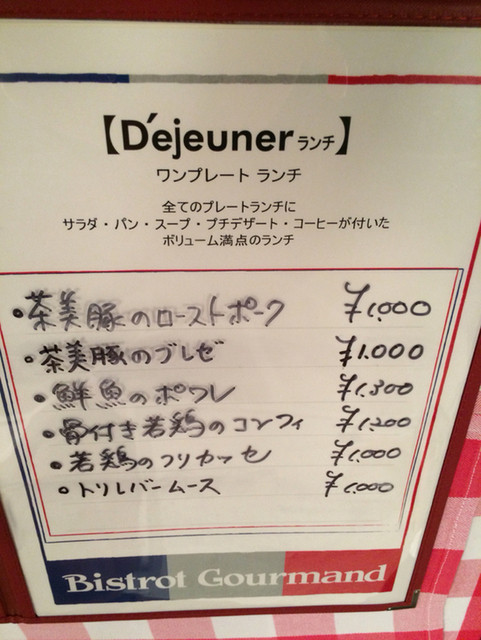 【D'ejeuner ランチ】
ワンプレート ランチ
全てのプレートランチに
サラダ・パン・スープ・プチデザート・コーヒーが付いた
ボリューム満点のランチ
・茶美豚のローストポーク ¥1,000
・茶美豚のブレゼ ¥1.000
・鮮魚のポワレ ¥1,300
・骨付き若鶏のコンフィ ¥1,200
・若鶏のフリカッセ ¥1,000
・トリレバームース ¥1,000
Bistrot Gourmand